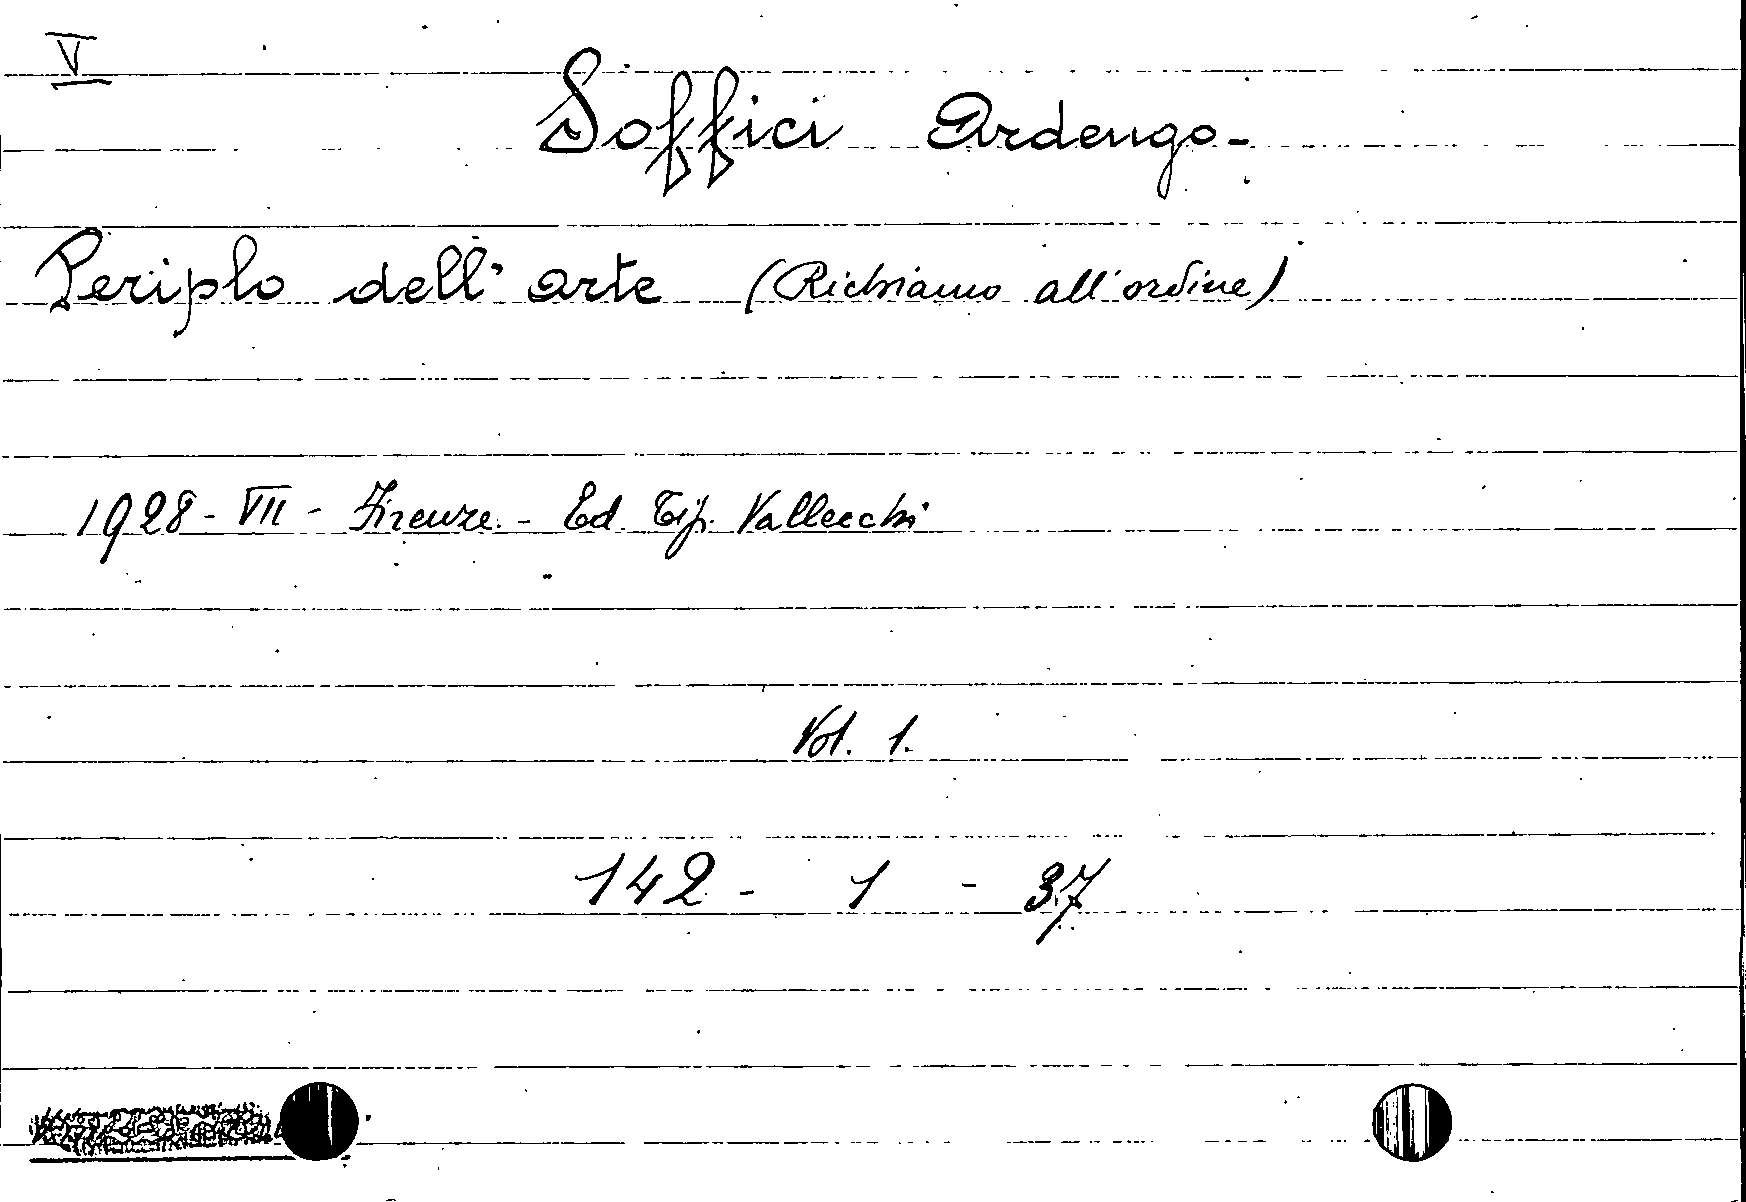 V
Soffici Ardengo-
Periplo dell'arte (Richiamo all'ordine)
1928-VII - Firenze. - Ed. Tip. Vallecchi
Vol. 1.
142 - 1 - 37